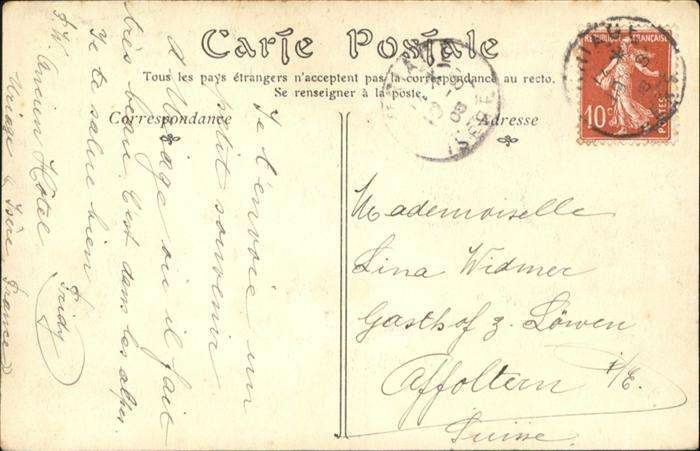 Carte Postale
Tous les pays étrangers n'acceptent pas la correspondance au recto.
Se renseigner à la poste.
Correspondance
Adresse
RÉPUBLIQUE FRANÇAISE
10c
POSTES
URIAGE
ISÈRE
Je t'envoie un
petit souvenir
d'Uriage où il fait
très beau. C'est dans les alpes.
Je te salue bien
Fridy
p. A. Ancien Hôtel
Uriage, Isère, France
Mademoiselle
Lina Widmer
Gasthof z. Löwen
Affoltern i/E.
Suisse.